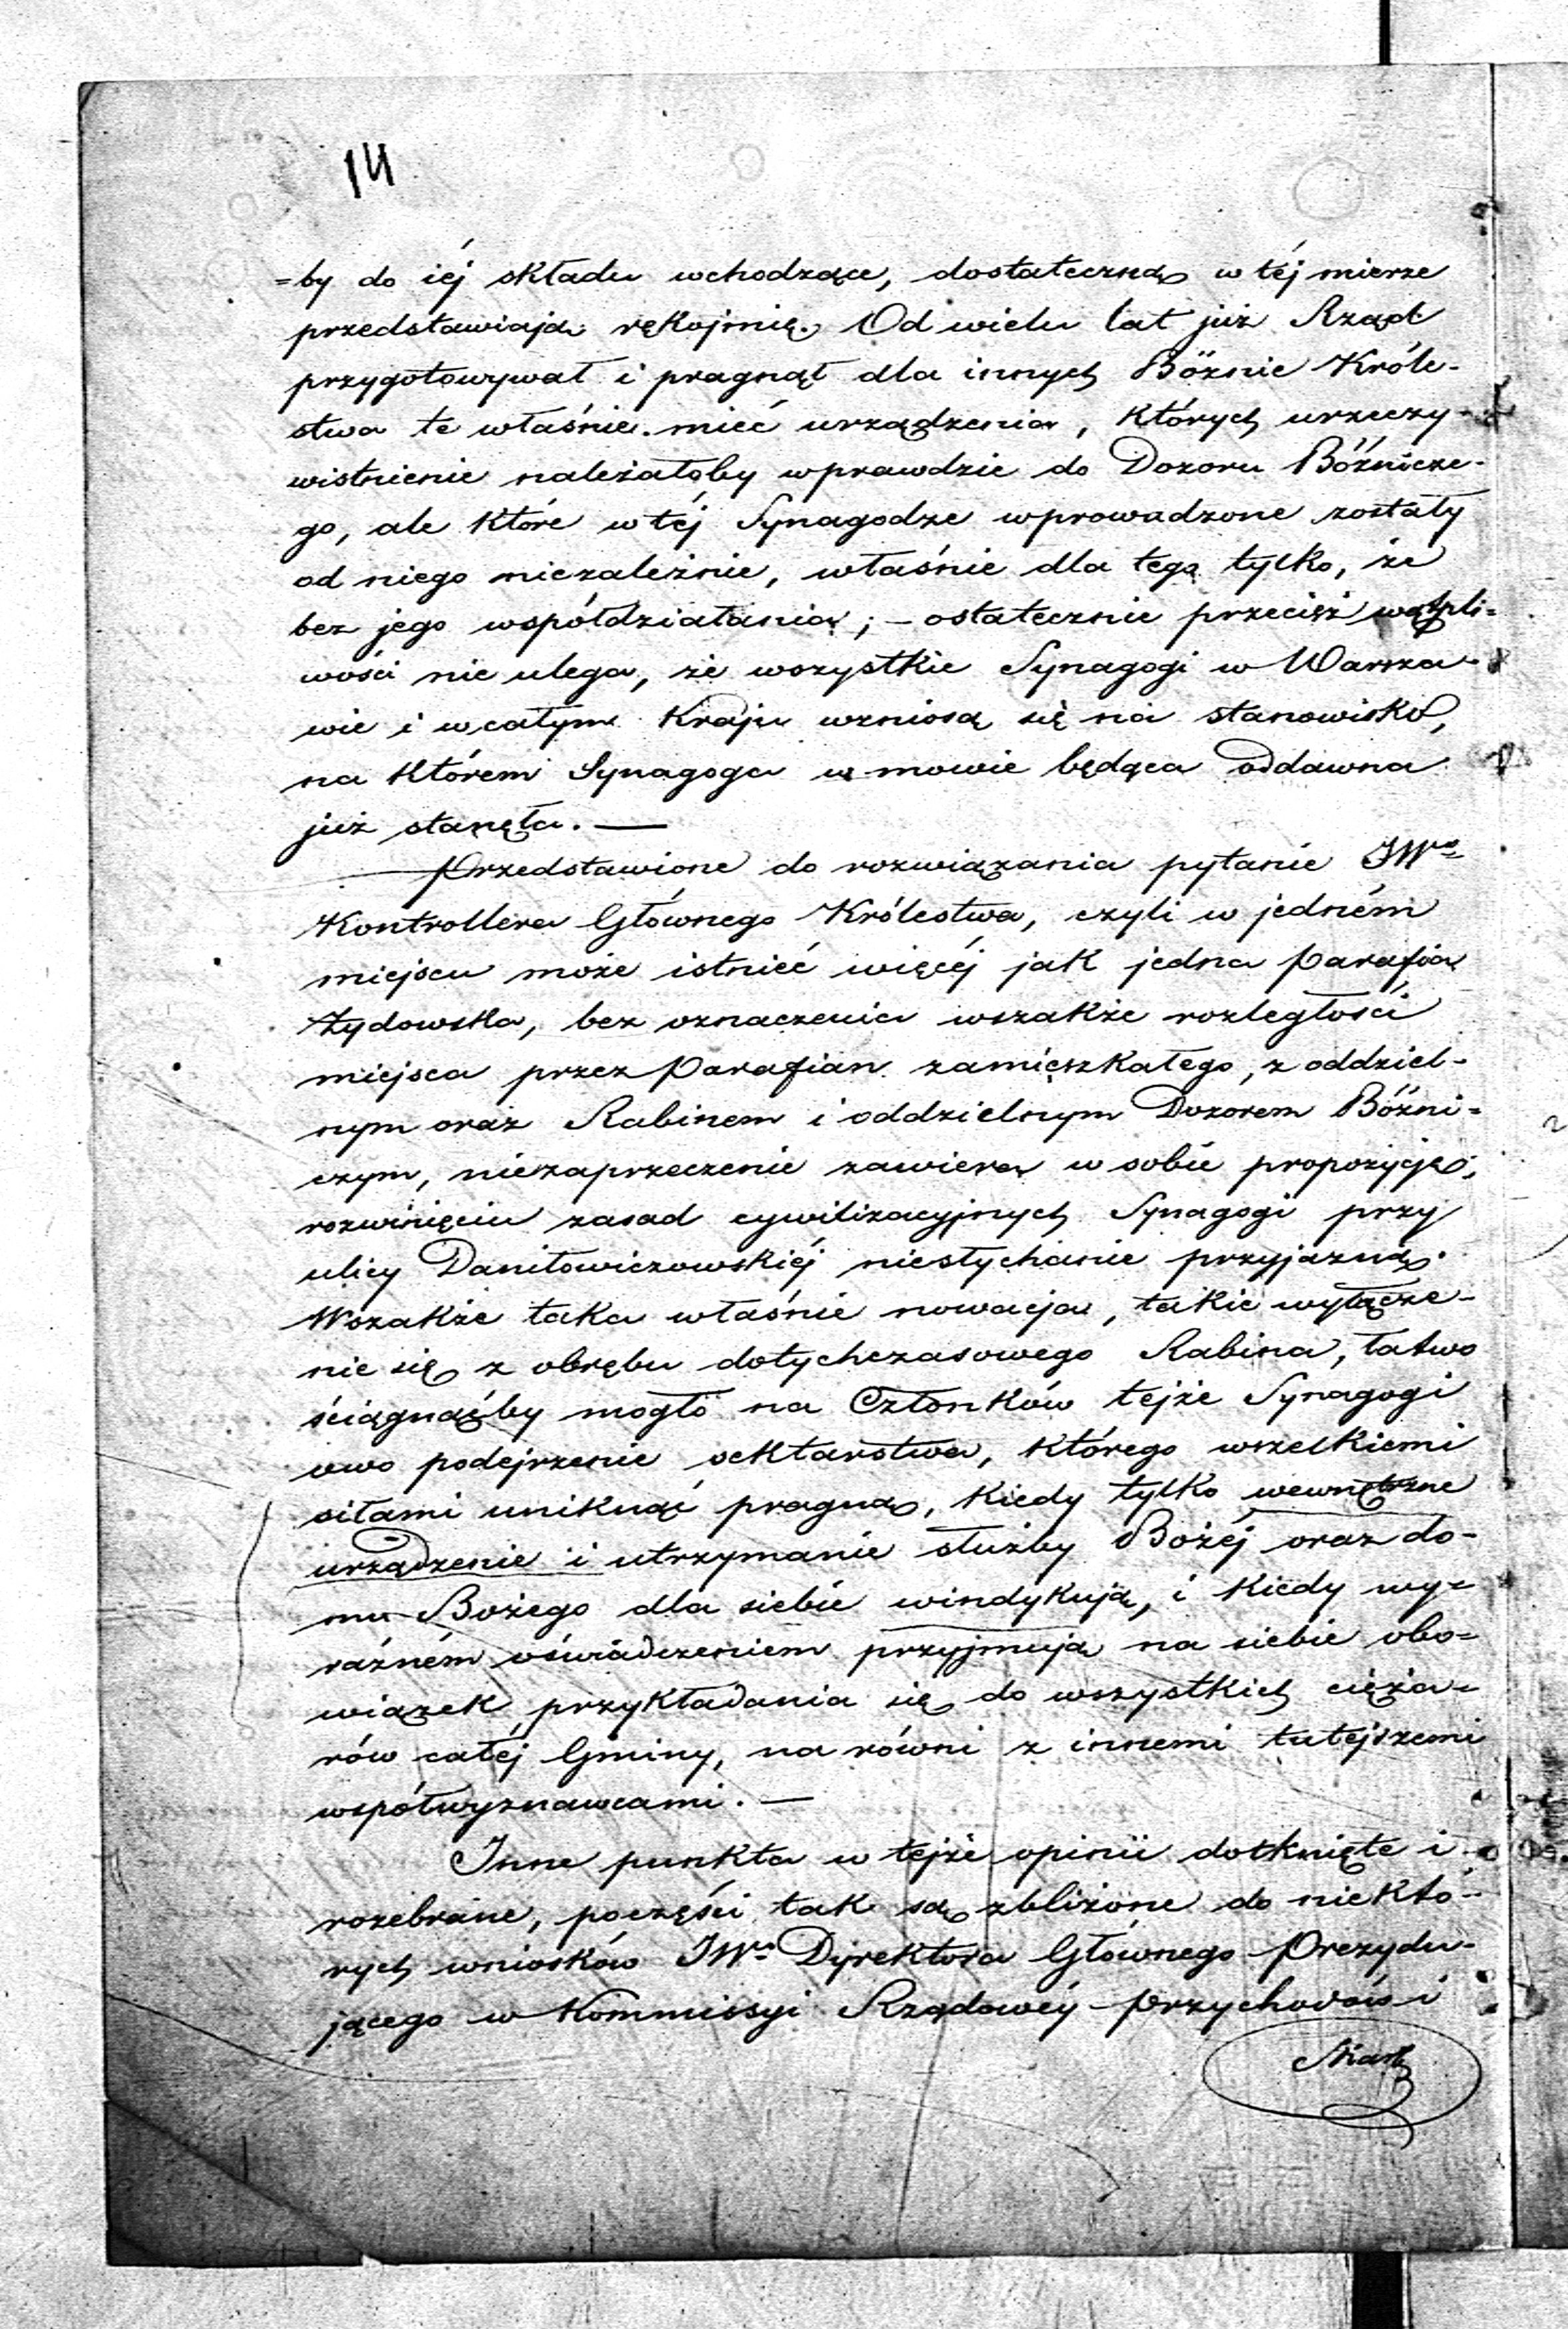 14
=by do iéj składu wchodzące, dostateczną w téj mierze
przedstawiają rękojmię. Od wielu lat już Rząd
przygotowywał i pragnął dla innych Bóżnic Króle-
stwa te właśnie mieć urządzenia, których urzeczy-
wistnienie należałoby wprawdzie do Dozoru Bóżnicze-
go, ale które w téj Synagodze wprowadzone zostały
od niego niezależnie, właśnie dla tego tylko, że
bez jego współdziałania; – ostatecznie przecież wątpli=
wości nie ulega, że wszystkie Synagogi w Warsza-
wie i w całym Kraju wzniosą się na stanowisko,
na którem Synagoga w mowie będąca oddawna
już stanęła. —
Przedstawione do rozwiązania pytanie JWo
Kontrollera Głównego Królestwa, czyli w jedném
miejscu może istnieć więcéj jak jedna Parafia
Żydowska, bez oznaczenia wszakże rozległości
miejsca przez Parafian zamieszkałego, z oddziel-
nym oraz Rabinem i oddzielnym Dozorem Bóźni=
czym, niezaprzeczenie zawiera w sobie propozycję,
rozwinięciu zasad cywilizacyjnych Synagogi przy
ulicy Daniłowiczowskiéj niesłychanie przyjazną.
Wszakże taka właśnie nowacja, takie wyłącze-
nie się z obrębu dotychczasowego Rabina, łatwo
ściągnąćby mogło na Członków tejże Synagogi
owo podejrzenie sektarstwa, którego wszelkiemi
siłami uniknąć pragną, kiedy tylko wewnętrzne
urządzenie i utrzymanie służby Bożéj oraz do-
mu Bożego dla siebie windykują, i kiedy wy=
raźném oświadczeniem przyjmują na siebie obo=
wiązek przykładania się do wszystkich cięża=
rów całéj Gminy, na równi z innemi tutejszemi
współwyznawcami. —
Inne punkta w tejże opinii dotknięte i
rozebrane, poczęści tak są zbliżone do niektó-
rych wniosków JWo Dyrektora Głównego Prezydu-
jącego w Kommissyi Rządowéy Przychodów i